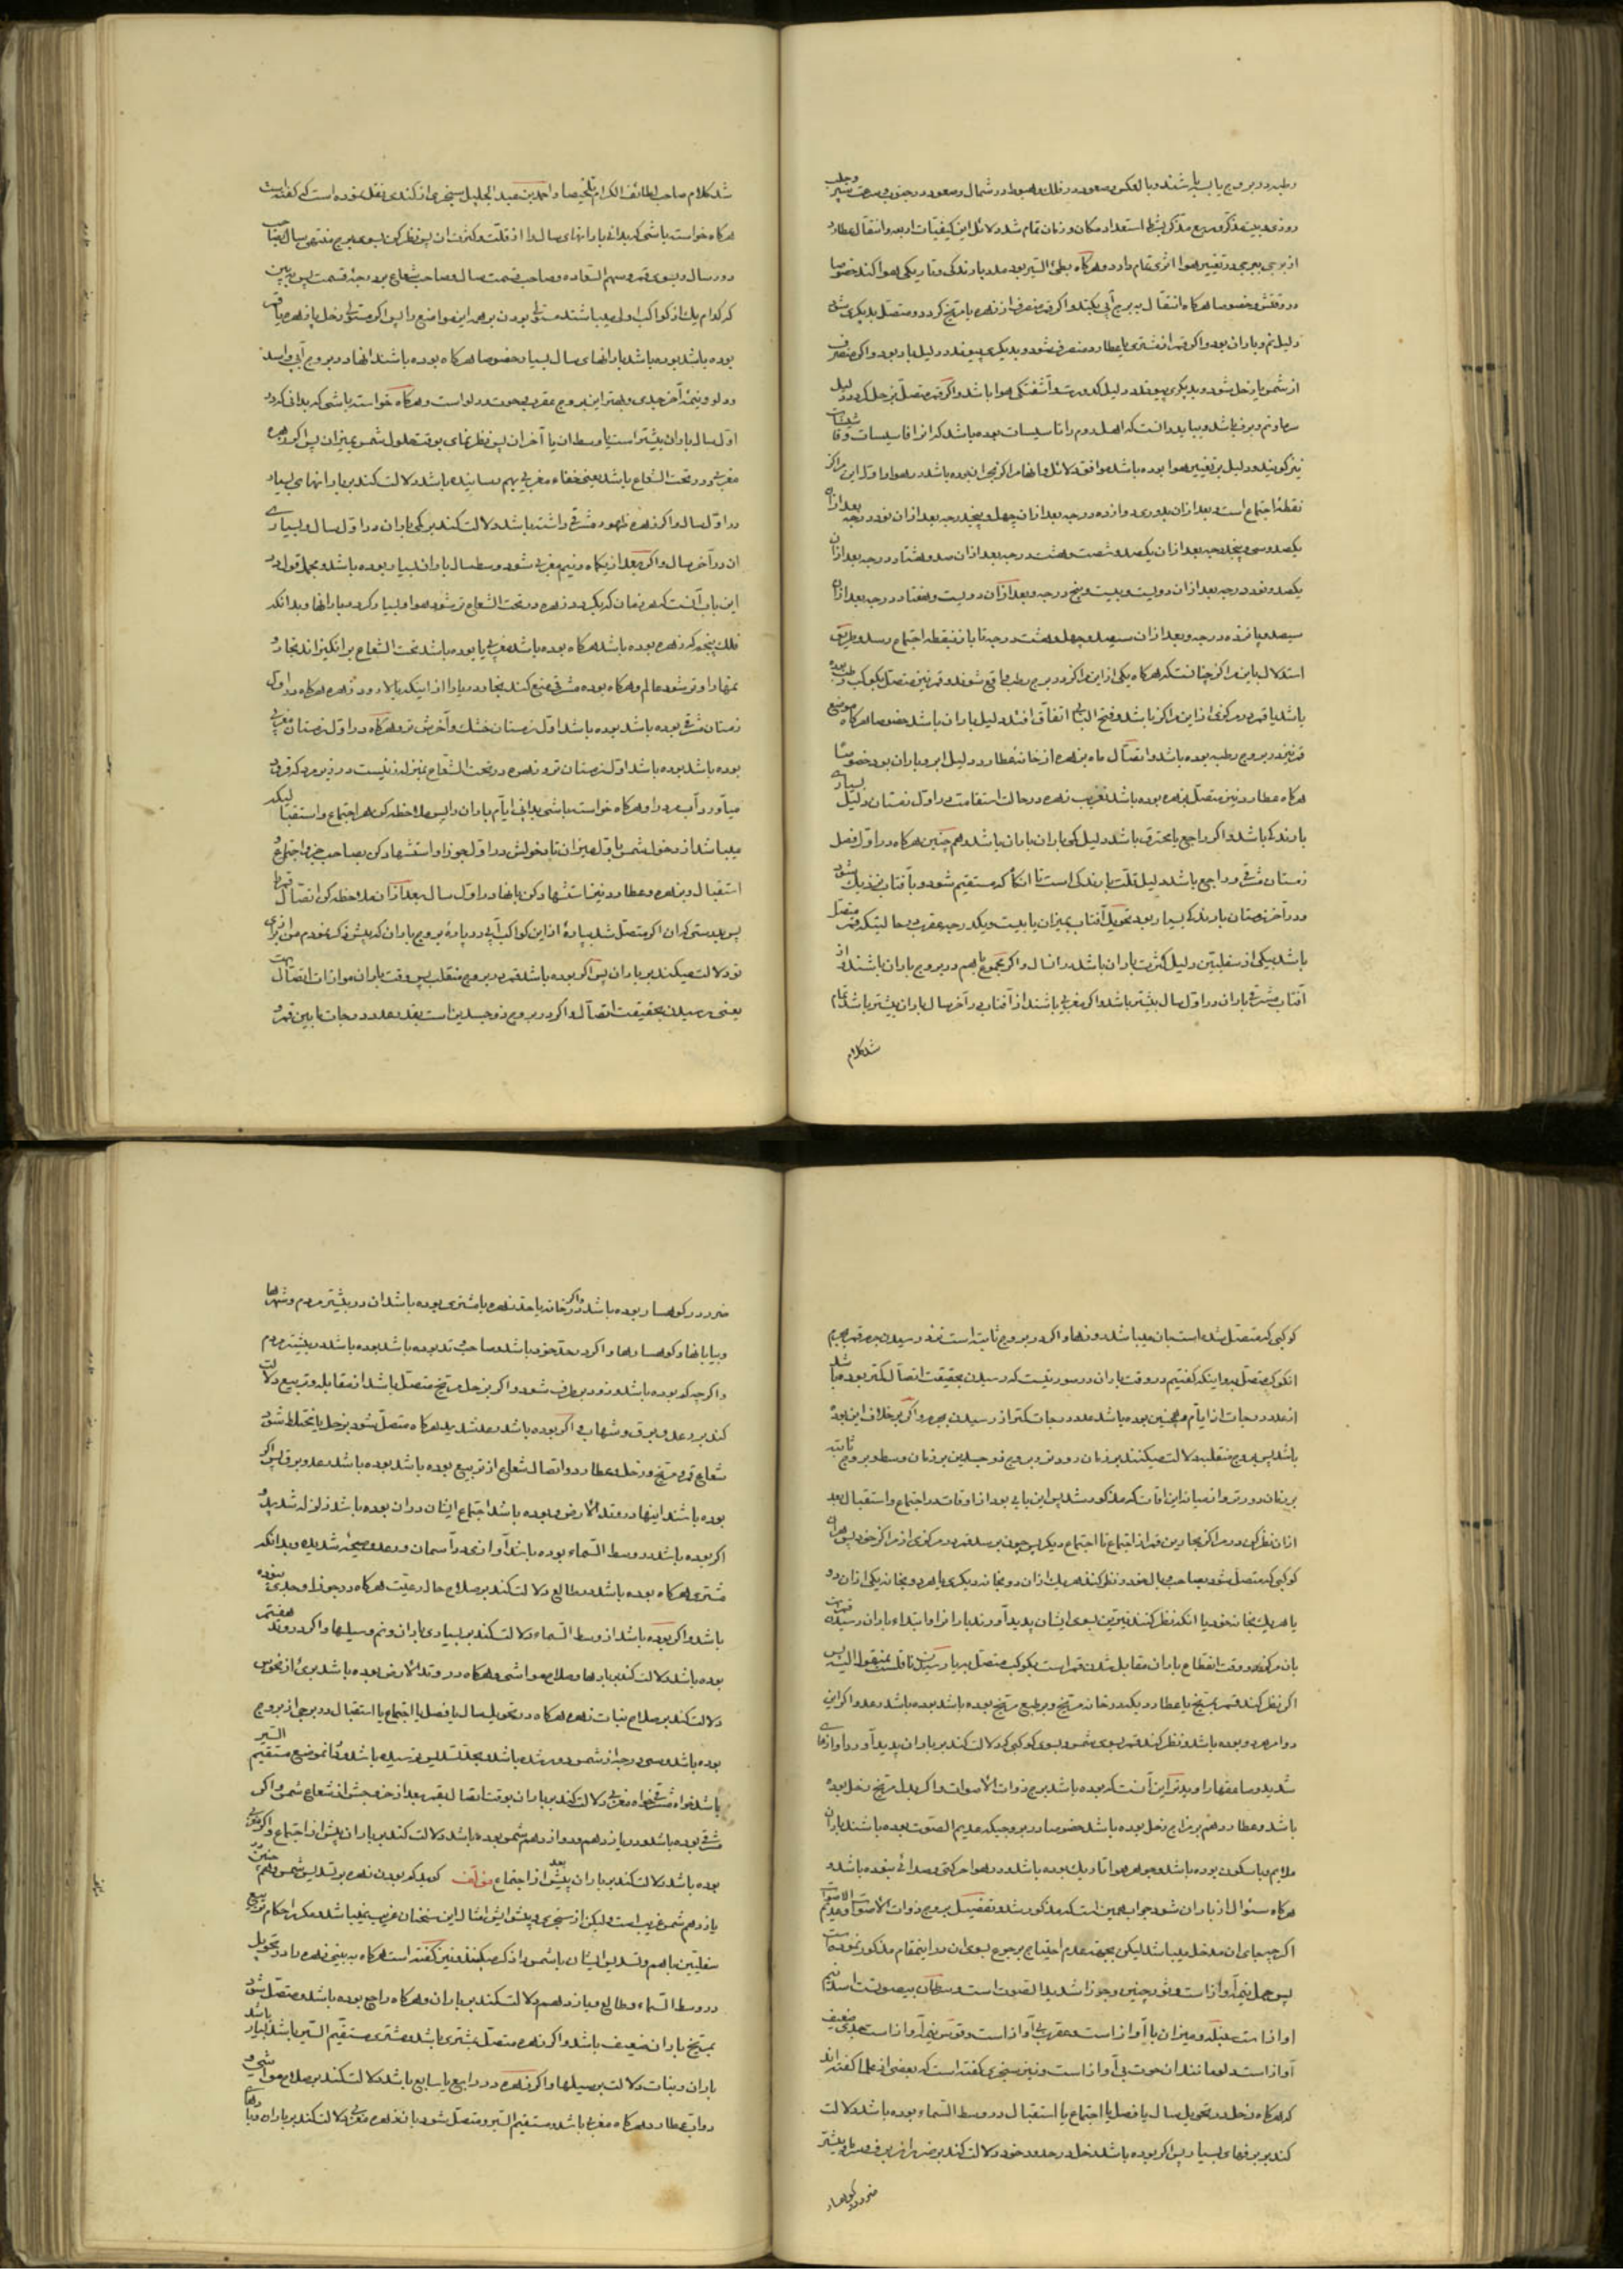 رطبه در بروج یابسه باشند و بالعکس و صعود در فلک و هبوط در شمال و صعود در جنوب و سرعت سیر
از برجی ببرجی در تغییر هوا اثری تمام دارد و هرگاه بطیء السیر بود مدد بارندگی و تاریکی هوا کند خصوصا
دلیل نم و باران بود و اگر قمر از مشتری یا عطارد منصرف شود و بدیگری پیوندد دلیل باد بود و اگر منصرف
از شمس یا زحل شود و بدیگری پیوندد دلیل کدورت و آشفتگی هوا باشد و اگر قمر متصل بزحل گردد دلیل
سرما و نم و برف باشد و بباید دانست که اهل روم را تاسیسات بوده باشد که انرا فاسیسات
نیز گویند و دلیل بر تغییر هوا بوده باشد موافق دلائل
نقطهٔ اجتماع است و بعد از ان بدوری دوازده درجه بعد از ان چهل و پنج درجه بعد از ان نود درجه بعد از ان
یکصد و سی و پنج درجه بعد از ان یکصد و شصت و هشت درجه بعد از ان صد و هشتاد درجه بعد از ان
یکصد و نود درجه بعد از ان دویست و بیست و پنج درجه و بعد از ان دویست و هفتاد درجه بعد از ان
سیصد و پانزده درجه و بعد از ان سیصد و چهل و هشت درجه تا باز بنقطه اجتماع رسد و طریق
استدلال باین مراکز چنانست که هرگاه یکی از این مراکز در برج رطب واقع شوند و قمر نیز متصل بکوکب رطب بوده
باشد یا قمر در مرکزی از این مراکز باشد و فتح الباب اتفاق افتد دلیل باران باشد خصوصا هرگاه موضع
قمر نیز در بروج رطبه بوده باشد و اتصال ماه بزهره از خانه عطارد دلیل ابر و باران بود خصوصا
هرگاه عطارد نیز متصل بزهره بوده باشد تقریب زهره در حالت استقامت در اول زمستان دلیل بسیاری
بارندگی باشد و اگر راجع یا محترق باشد دلیل کمی باران باران باشد و هم چنین هرگاه در اول فصل
زمستان مشرقی و راجع باشد دلیل قلت بارندگی است تا انگاه که مستقیم شود و بآفتاب نزدیک شود
و در آخر زمستان بارندگی بسیار بود تحویل آفتاب بمیزان یا بیست و یکدرجه عقرب در حالیتکه قمر متصل
باشد بیکی از سفلیین دلیل کثرت باران باشد در انسال و اگر مجموع باهم در بروج باران باشند و از
آفتاب مشرقی باران در اول سال بیشتر باشد و اگر مغربی باشند از آفتاب در آخر سال باران بیشتر باشد تمام
شد کلام
شد کلام صاحب لطائف الکرام تلخیصا و احمد بن عبد الجلیل سنجری از کندی نقل نموده است که گفته است
هرگاه خواسته باشی که بدانی بارانهای سال را از قلت و کثرت ان پس نظر کن بسوی برج منتهی سال و صاحب
دور سال و بسوی قمر و سهم السعاده و صاحب قسمت سال و صاحب شعاع بر درجهٔ قسمت پس ببین
که کدام یک از کواکب اولی میباشند مستولی بودن بر همه این مواضع را پس اگر مستولی زحل یا زهره یا قمر
بوده باشد بوده باشد بارانهای سال بسیار خصوصا هرگاه بوده باشند انها در بروج آبی و اسد
و دلو و نیمهٔ آخر جدی و بهتر این بروج عقرب و حوت و دلو است و هرگاه خواسته باشی که بدانی که در
اول سال باران بیشتر است یا وسط ان یا آخر ان پس نظر نمای بوقت حلول شمس بمیزان پس اگر زهره
مغربی و در تحت الشعاع باشد یعنی خفاء مغربی بهم رسانیده باشد دلالت کند بر بارانهای بسیار
در اول سال و اگر زهره ظهور مشرقی داشته باشد دلالت کند بر کمی باران در اول سال و بسیاری
ان در آخر سال و اگر بعد از یکماه و نیم مغربی شود وسط سال باران بسیار بوده باشد و مجمل قول در
این باب آنست که هر زمان که بگردد زهره در تحت الشعاع تر شود هوا و بسیار گردد بارانها و بدانکه
زمستان مشرقی بوده باشد بوده باشد اول زمستان خشک و آخرش تر و هرگاه در اول زمستان مغربی
بوده باشد بوده باشد اول زمستان تر و زهره در تحت الشعاع بمنزله زنیست
می آورد آب مرد را و هرگاه خواسته باشی بدانی ایام باران را پس ملاحظه کن هر اجتماع و استقبالیکه
میباشد از دخول شمس باول میزان تا دخولش در اول جوزا و استشهاد کن بصاحب جزء اجتماع و
استقبال و بزهره و عطارد نیز استشهاد کن بانها در اول سال بعد از ان ملاحظه کن اتصال قمر را
پس بدرستیکه ان اگر متصل شد بپارهٔ از این کواکب آبی در پارهٔ بروج باران که پیش ذکر نمودم من از برای
تو دلالت میکند بر باران پس اگر بوده باشد قمر در بروج منقلب پس وقت باران موازات اتصال است
یعنی رسیدن بحقیقت اتصال و اگر در بروج ذو جسدین است بقدر عدد درجات ما بین قمر و
کوکبی که متصل شده است بان میباشد روزها و اگر در بروج ثابته است نزد رسیدن جرم قمر بجرم
انکوکب متصل به و اینکه گفتیم در وقت باران در صورتیست که رسیدن بحقیقت اتصال کمتر بوده باشد
از عدد درجات از ایام و همچنین بوده باشد عدد درجات کمتر از رسیدن بجرم و اگر بر خلاف این بوده
باشد پس بروج منقلبه دلالت میکنند بر زمان زودتر و بروج ذو جسدین بر زمان وسط و بروج ثابته
بر زمان دورتر و از میانه این اوقات که مذکور شد پس این یابی بود از اوقات در اجتماع و استقبال بعد
از ان نظر کن در مراکز مجاریی قمر از اجتماع تا اجتماع دیگر پس چون برسد قمر در مرکزی از مراکز خود پس بهر
کوکبی که متصل شود بصاحب وبال خود و نظر کند هر یک از ان دو بخانه دیگری یا هر دو بخانه یکی از ان دو
یا هر یک بخانه خود یا انکه نظر کنند نیرین بسوی ایشان پدید آورند باران را و ابتداء باران رسیدن قمر است
بان مرکز و وقت انقطاع باران مقابل شدن قمر است بکوکب متصل به
اگر نظر کند قمر بمریخ یا عطارد بیکه در خانه مریخ و بر طبع مریخ بوده باشد بوده باشد رعد و اگر این
دو امر هر دو بوده باشد و نظر کند قمر بسوی شمس و بسوی کوکبی که دلالت کند بر باران پدید آورد آوازهای
شدید و صاعقها را و بدتر این آنست که بوده باشد برج ذوات الاصوات و اگر بدل مریخ زحل بوده
باشد و عطارد هم بر مزاج زحل بوده باشد خصوصا در بروجیکه عدیم الصوت بوده باشند باران
ملایم و با سکون بوده باشد و جو هر هوا تاریک بوده باشد و در هوا حرکتی و صدائی نبوده باشد و
هرگاه سئوال از باران شود جواب همین است که مذکور شد و تفصیل بروج ذوات الاصوات و عدیم الاصوات
اگرچه جای ان مدخل میباشد لیکن بجهت عدم احتیاج برجوع بسوی ان در اینمقام مذکور نموده
پس حمل نیم آواز است و ثور چنین و جوزا شدید الصوت است و سرطان بیصوتست اسد نیم
آواز است سنبله و میزان با آواز است و عقرب بی آواز است و قوس نیم آواز است جدی ضعیف
آواز است دلو مانند ان حوت بی آواز است و نیز سنجری گفته است که بعضی از علما گفته اند
که هرگاه زحل در تحویل سال یا فصل یا اجتماع یا استقبال در وسط السماء بوده باشد دلالت
کند بر برفهای بسیار پس اگر بوده باشد زحل در حدود خود دلالت کند بر ضرر ان برف و سرما و بیشتر
ضرر در کوهسار
ضرر در کوهسار بوده باشد و اگر در خانه یا حد زهره یا مشتری بوده باشد ان در بیشتر مردم و شهرها
و بیابانها و کوهسارها و اگر در حد خود باشد و صاحب تد بوده باشد بوده باشد در بیشتر مردم
و اگر چه که بوده باشد و زود بر طرف شود و اگر بزحل مریخ متصل باشد از مقابله و تربیع دلالت
کند بر رعد و برق و شهاب و اگر بوده باشد رعد شدید هرگاه متصل شود بزحل یا مختلط شود
شعاع قمر و مریخ و زحل و عطارد و اتصال شعاع از تربیع بوده باشد بوده باشد رعد و برق پس اگر
بوده باشند اینها در وتد الارض و بوده باشد اجتماع ایشان در ان بوده باشد زلزله شدیده و
اگر بوده باشد در وسط السماء بوده باشد آوازی در آسمان و رعد و صیحهٔ شدیده و بدانکه
مشتری هرگاه بوده باشد در طالع دلالت کند بر صلاح حال رعیت هرگاه در جوزا و جدی نبوده
باشد و اگر بوده باشد از وسط السماء دلالت کند بر بسیاری باران و نم و سیلها و اگر در وتد هفتم
بوده باشد دلالت کند بر بادها و صلاح مواشی و هرگاه در وتد الارض بوده باشد بریء از نحوس
دلالت کند بر صلاح نبات زهره هرگاه در تحویل سال یا فصل یا اجتماع یا استقبال در برجی از بروج
بوده باشد و سی درجه از شمس دور شده باشد و بحد تسدیس نرسیده باشد و در ان موضع مستقیم السیر
باشد خواه مشرقی خواه مغربی دلالت کند بر باران بوقت اتصال بقمر بعد از خروجش از شعاع شمس و اگر
مشرقی بوده باشد و در یازدهم و دوازدهم شمس بوده باشد دلالت کند بر باران پیش از اجتماع و اگر مغربی
بوده باشد دلالت کند بر باران بعد از اجتماع مؤلف گوید که بودن زهره بر تسدیس شمس و هم چنین
یازدهم شمس غریب است ولیکن از سنجری و پیش و پس امثال این سخنان غریب نمیباشد و مکرر احکام تربیع
سفلیین باهم و تسدیس ایشان باشمس را ذکر میکند و نیز گفته است هرگاه به بینی زهره را در تحویل
در وسط السماء و طالع و یازدهم دلالت کند بر باران و هرگاه راجع بوده باشد و متصل شود
بمریخ باران ضعیف باشد و اگر زهره متصل بمشتری باشد و مشتری مستقیم السیر باشد باشد بسیار
باران و نبات و دلالت بر سیلها و اگر زهره در رابع یا سابع باشد دلالت کند بر صلاح مواشی و
دواب عطارد هرگاه مغربی باشد و مستقیم السیر و متصل شود بان زهره مغربی دلالت کند بر باران و بادهای